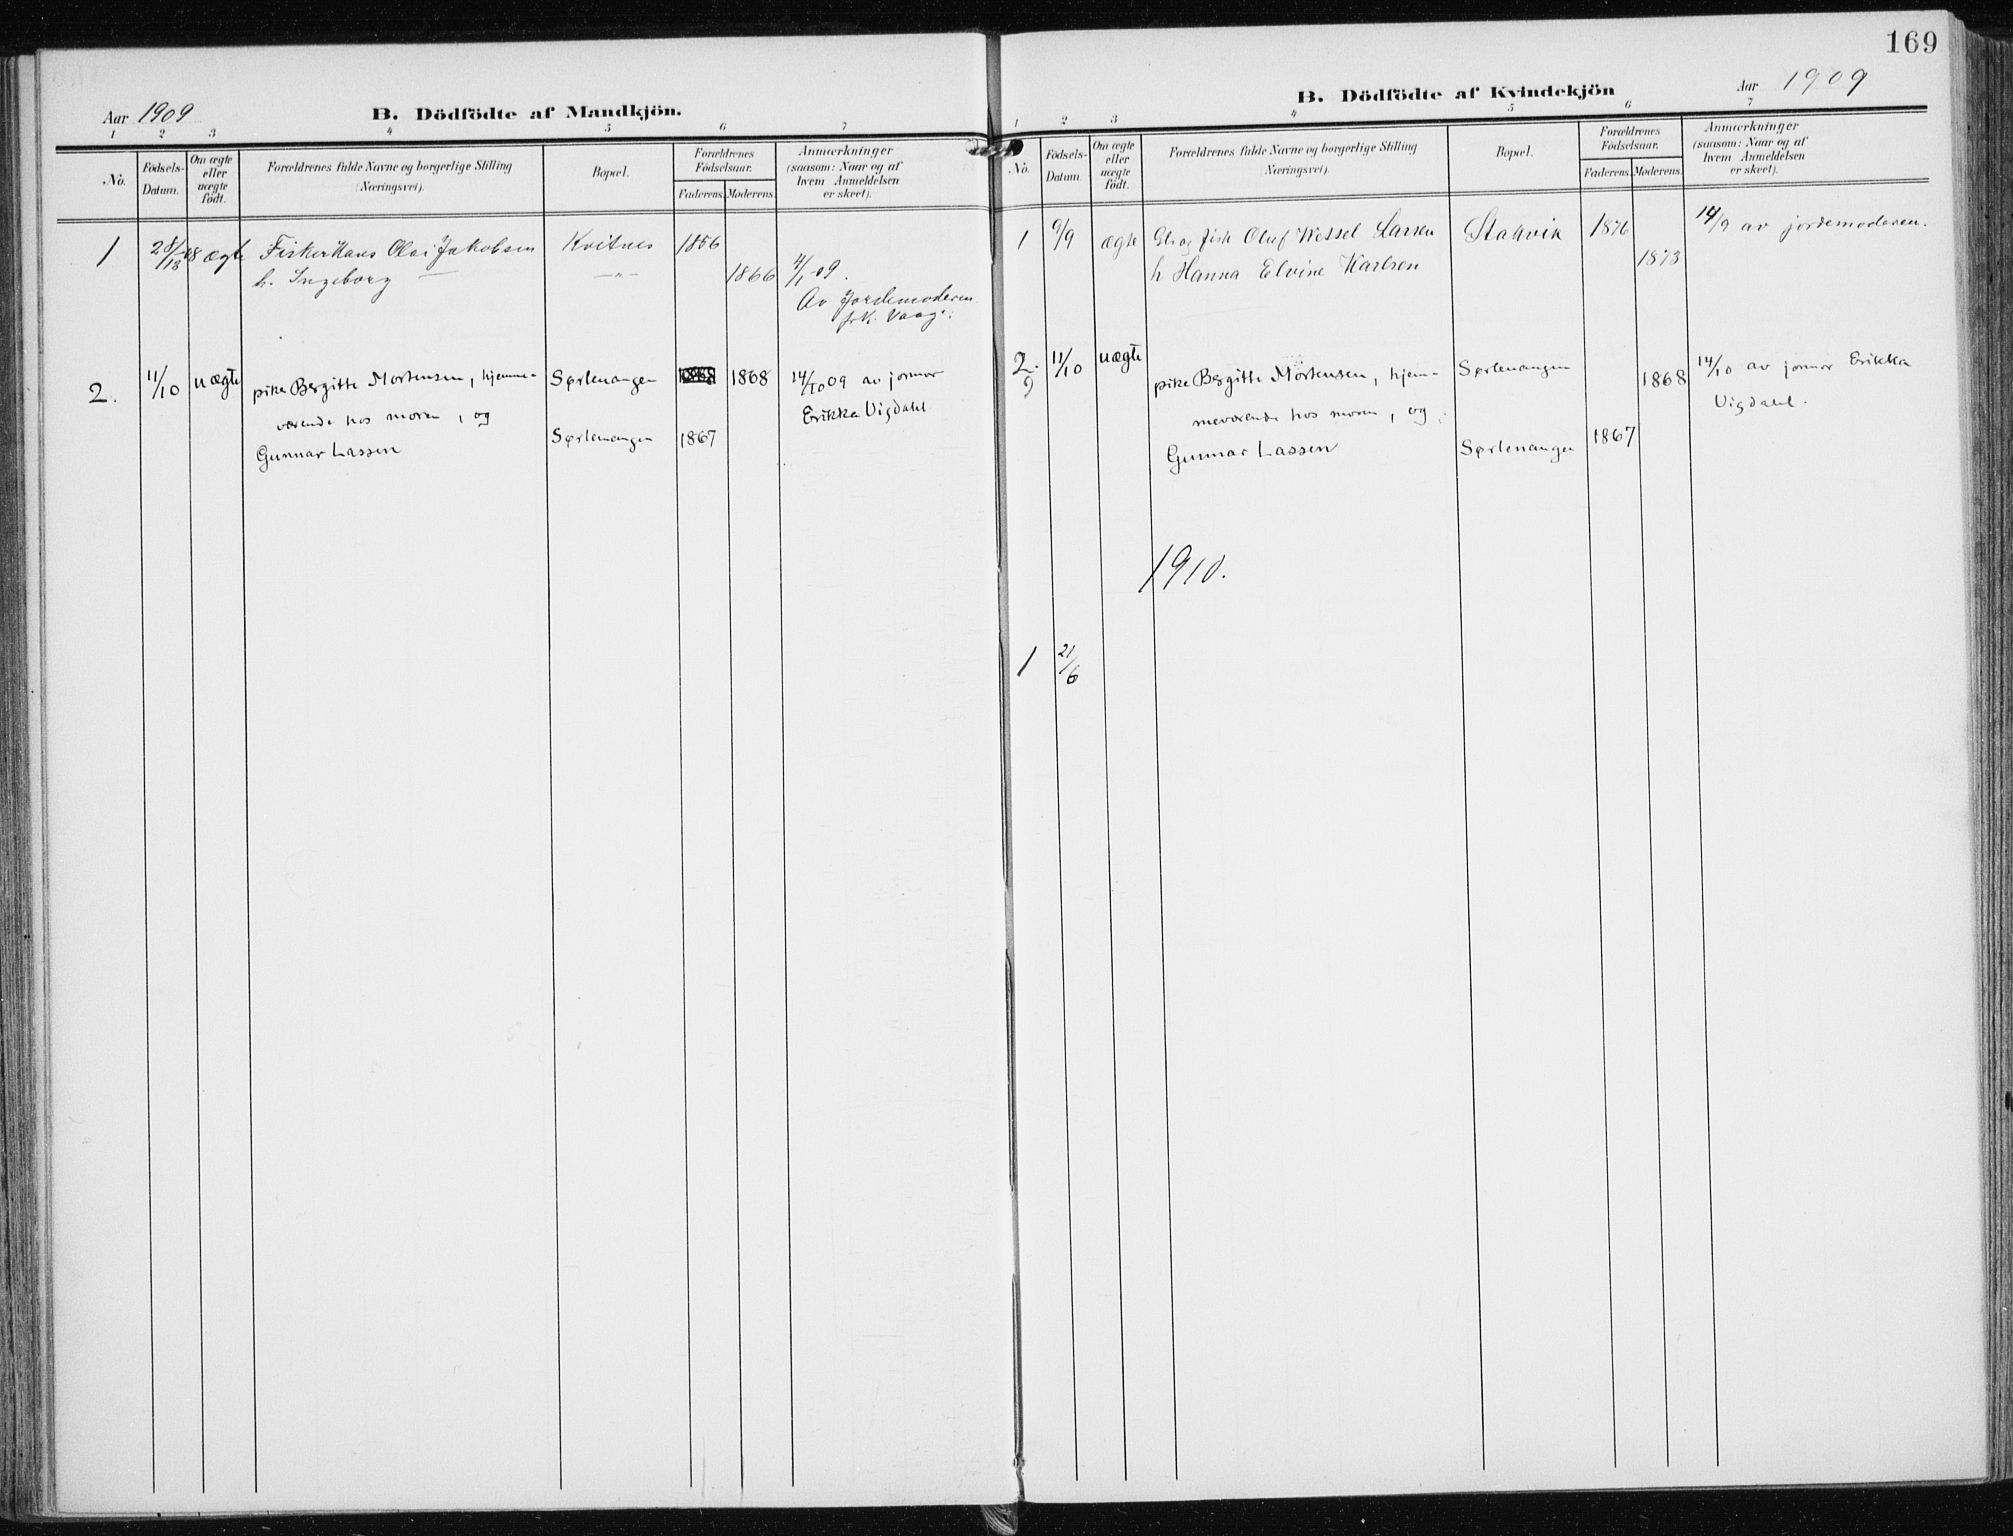 Aar 1909
B. Dödfödte af Mandkjön.
1 2 3 4 5 6 7
No.
Födsels-
Datum.
Om ægte
eller
uægte
födt.
Forældrenes fulde Navne og borgerlige Stilling
(Næringsvei).
Bopæl.
Forældrenes
Födselsaar.
Faderens. Moderens.
Anmærkninger
(saasom: Naar og af
hvem Anmeldelsen
er skeet).
1 28/12 08 ægte Fisker Hans Olai Jakobsen Kvitnes 1856
h. Ingeborg — — " — 1866 4/1 09.
Av Jordemoderen
frk. Vaage.
2. 11/10 uægte pike Bergitte Mortensen, hjemme- Sørlenangen 1868 14/10 09 av jormor
værende hos moren, og Erikka Vigdahl
Gunnar Lassen Sørlenangen 1867
169
B. Dödfödte af Kvindekjön
Aar 1909
1 2 3 4 5 6 7
No.
Födsels-
Datum.
Om ægte
eller
uægte
födt.
Forældrenes fulde Navne og borgerlige Stilling
(Næringsvei).
Bopæl.
Forældrenes
Födselsaar.
Faderens. Moderens.
Anmærkninger
(saasom: Naar og af
hvem Anmeldelsen
er skeet).
1 9/9 ægte fisk Oluf Wessel Larsen Stakvik 1876 14/9 av jordemoderen.
h Hanna Elvine Karlsen 1873
2. 11/10 uægte pike Bergitte Mortensen, hjem- Sørlenangen 1868 14/10 av jormor Erikka
9 meværende hos moren, og Vigdahl.
Gunnar Lassen Sørlenangen 1867
1910.
1 21/6